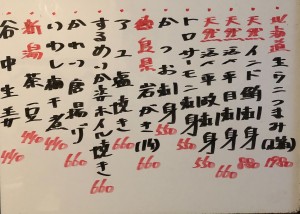 北海道生ウニつまみ 1980
天然インド鮪刺身 880
天然 目鯛刺身 660
天然 平政刺身 550
トロサーモン刺身 550
かつお刺身 550
島県岩がき 660
アユ塩焼き 660
するめいか姿ホイル焼き 660
かれい唐揚げ 660
いわし梅干煮 440
新潟茶豆 440
谷中生姜 440